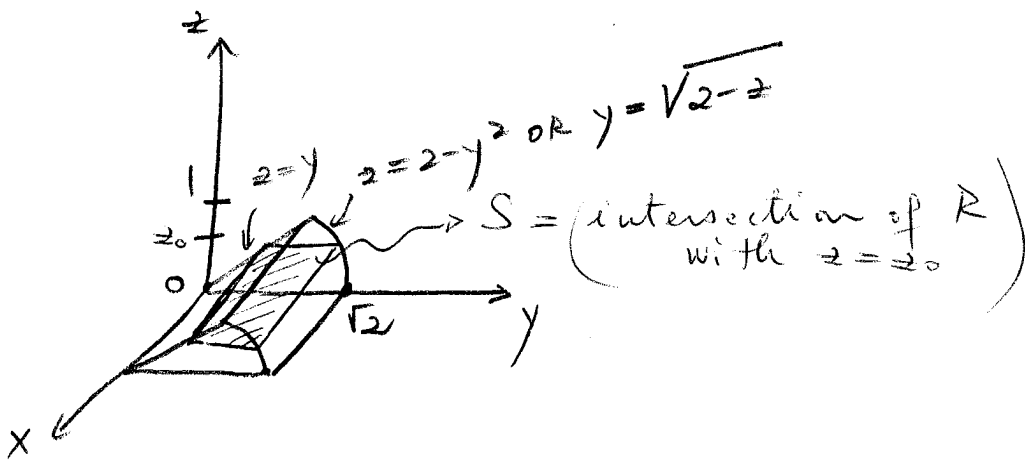 z
z = 2 - y² OR y = √2-z
1
z = y
z₀
S = (intersection of R
with z = z₀)
0
√2
y
x